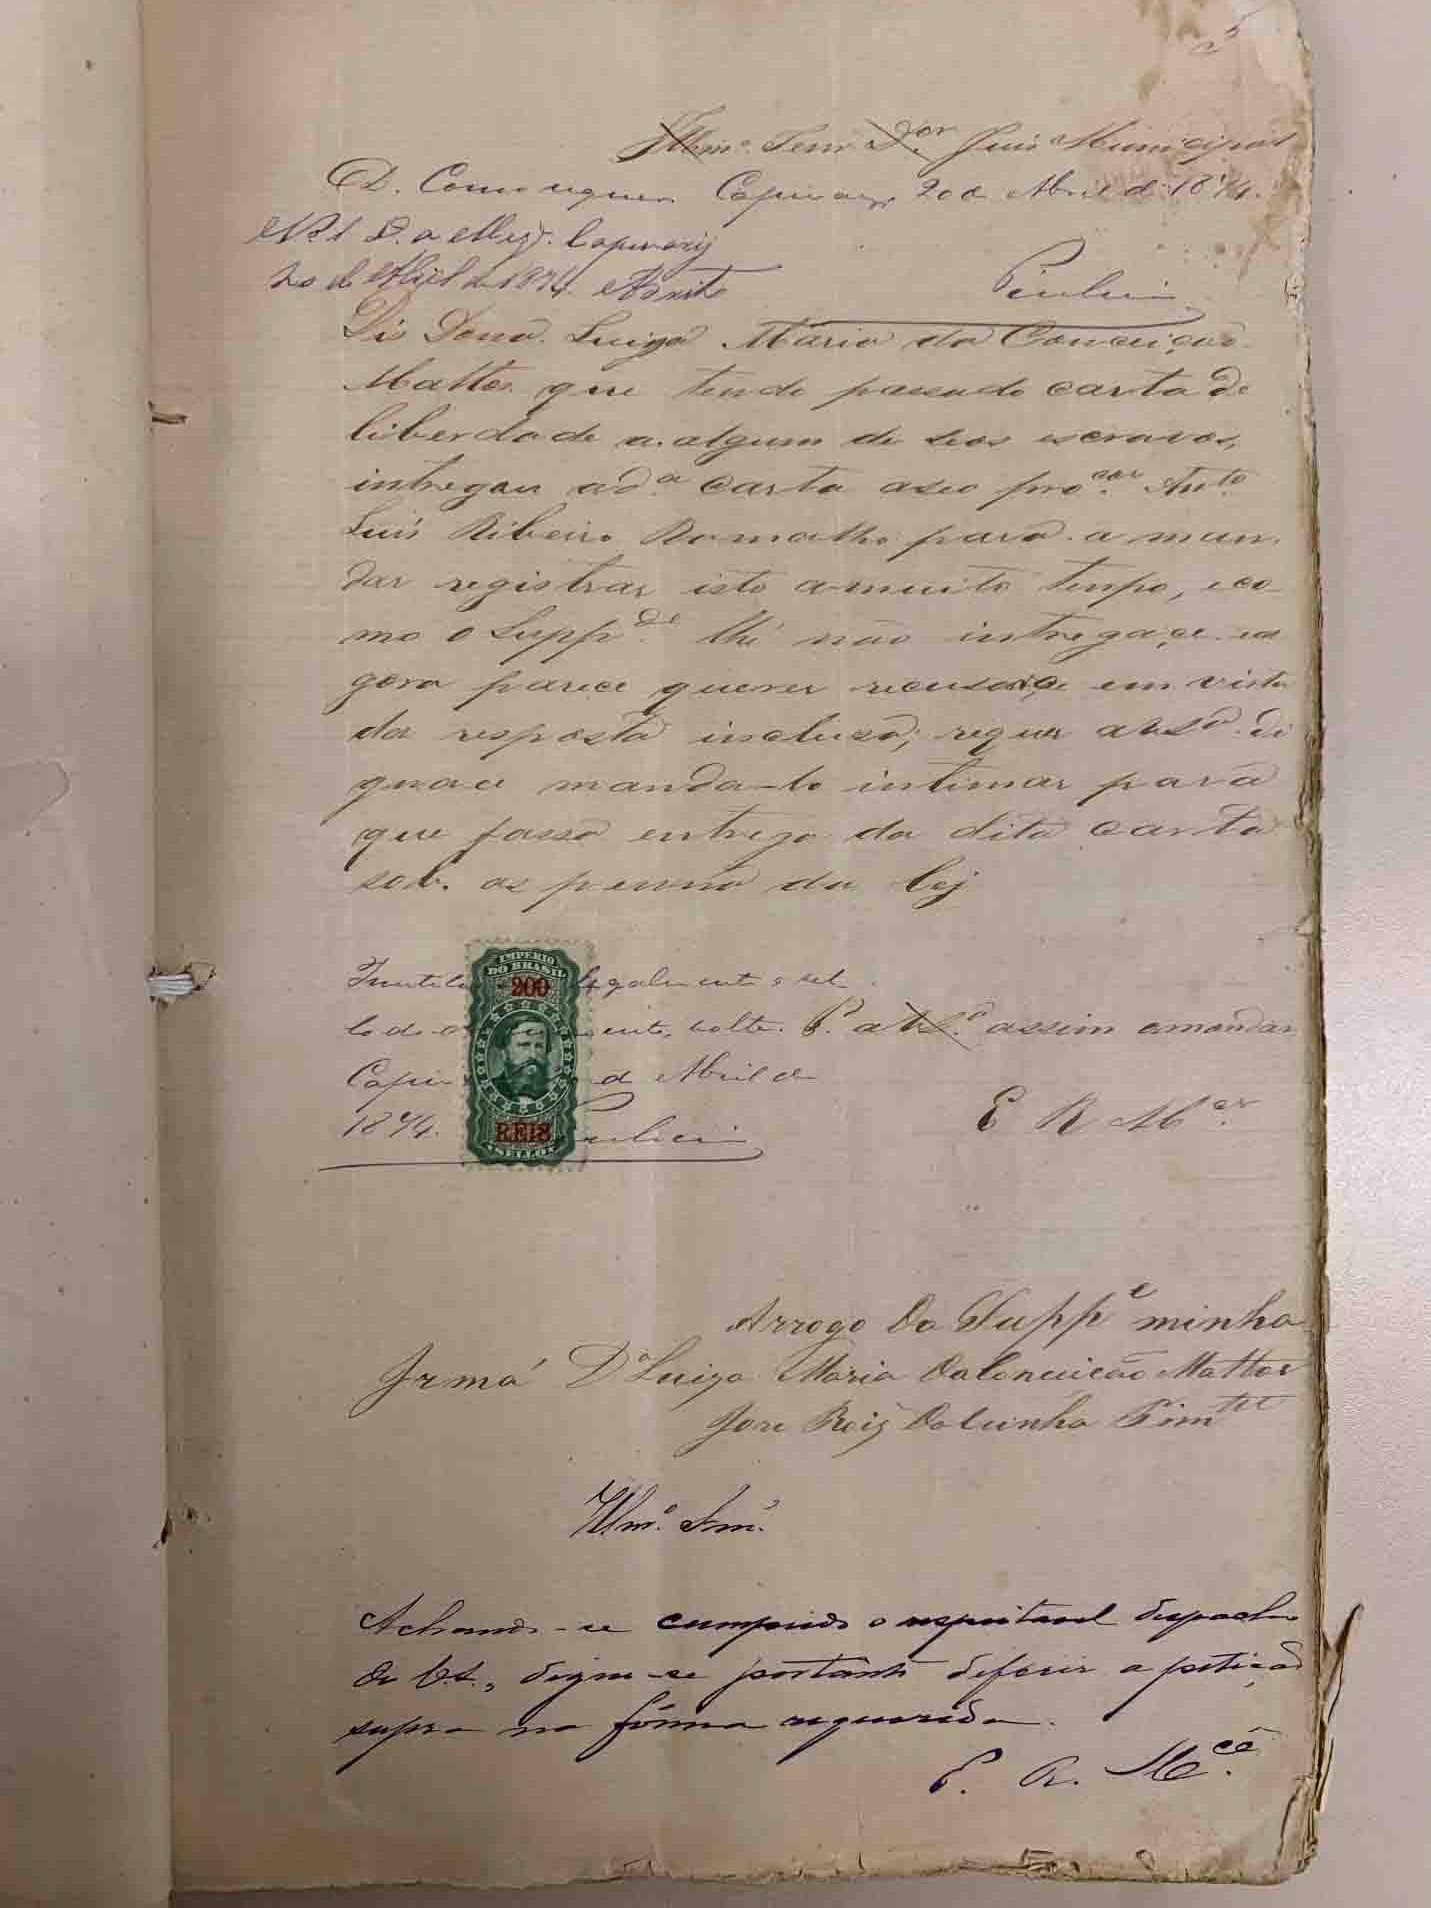 Illmo. Senr. Dor. Juis Municipal
D. Como requer. Capivary, 20 de Abril de 1874.
D. a Capivary
20 de Abril de 1874.
Dis Dona Luiza Maria da Conceição
Mattos que tendo passado carta de
liberdade a algum de seos escravos,
intregou a da carta aseo procor. Anto.
Luis Ribeiro Ramalho para a man
dar registrar isto amuito tempo, eco-
mo o Suppdo. lhe não intregaçe ea
gora parece querer recusarçe em vista
da resposta incluza; requer a VSa. di
gnace manda-lo intimar para
que fassa entrega da dita carta
sob. as penna da lej
IMPERIO
DO BRASIL
200
RÉIS
SELLO
legalmente o sel-
volte. P. a VSa. assim omandar
Abril de
1874.
E R Mcer.
Arrogo Da Suppe minha
Irmá Da Luiza Maria DaConceicão Mattos
Jose Roiz DaCunha Pimtel
Illmo. Snr.
Achando-se cumprido o respeitavel despacho
de V.S., digne-se portanto deferir a petição
supra na fórma requerida.
E. R. Mcê.